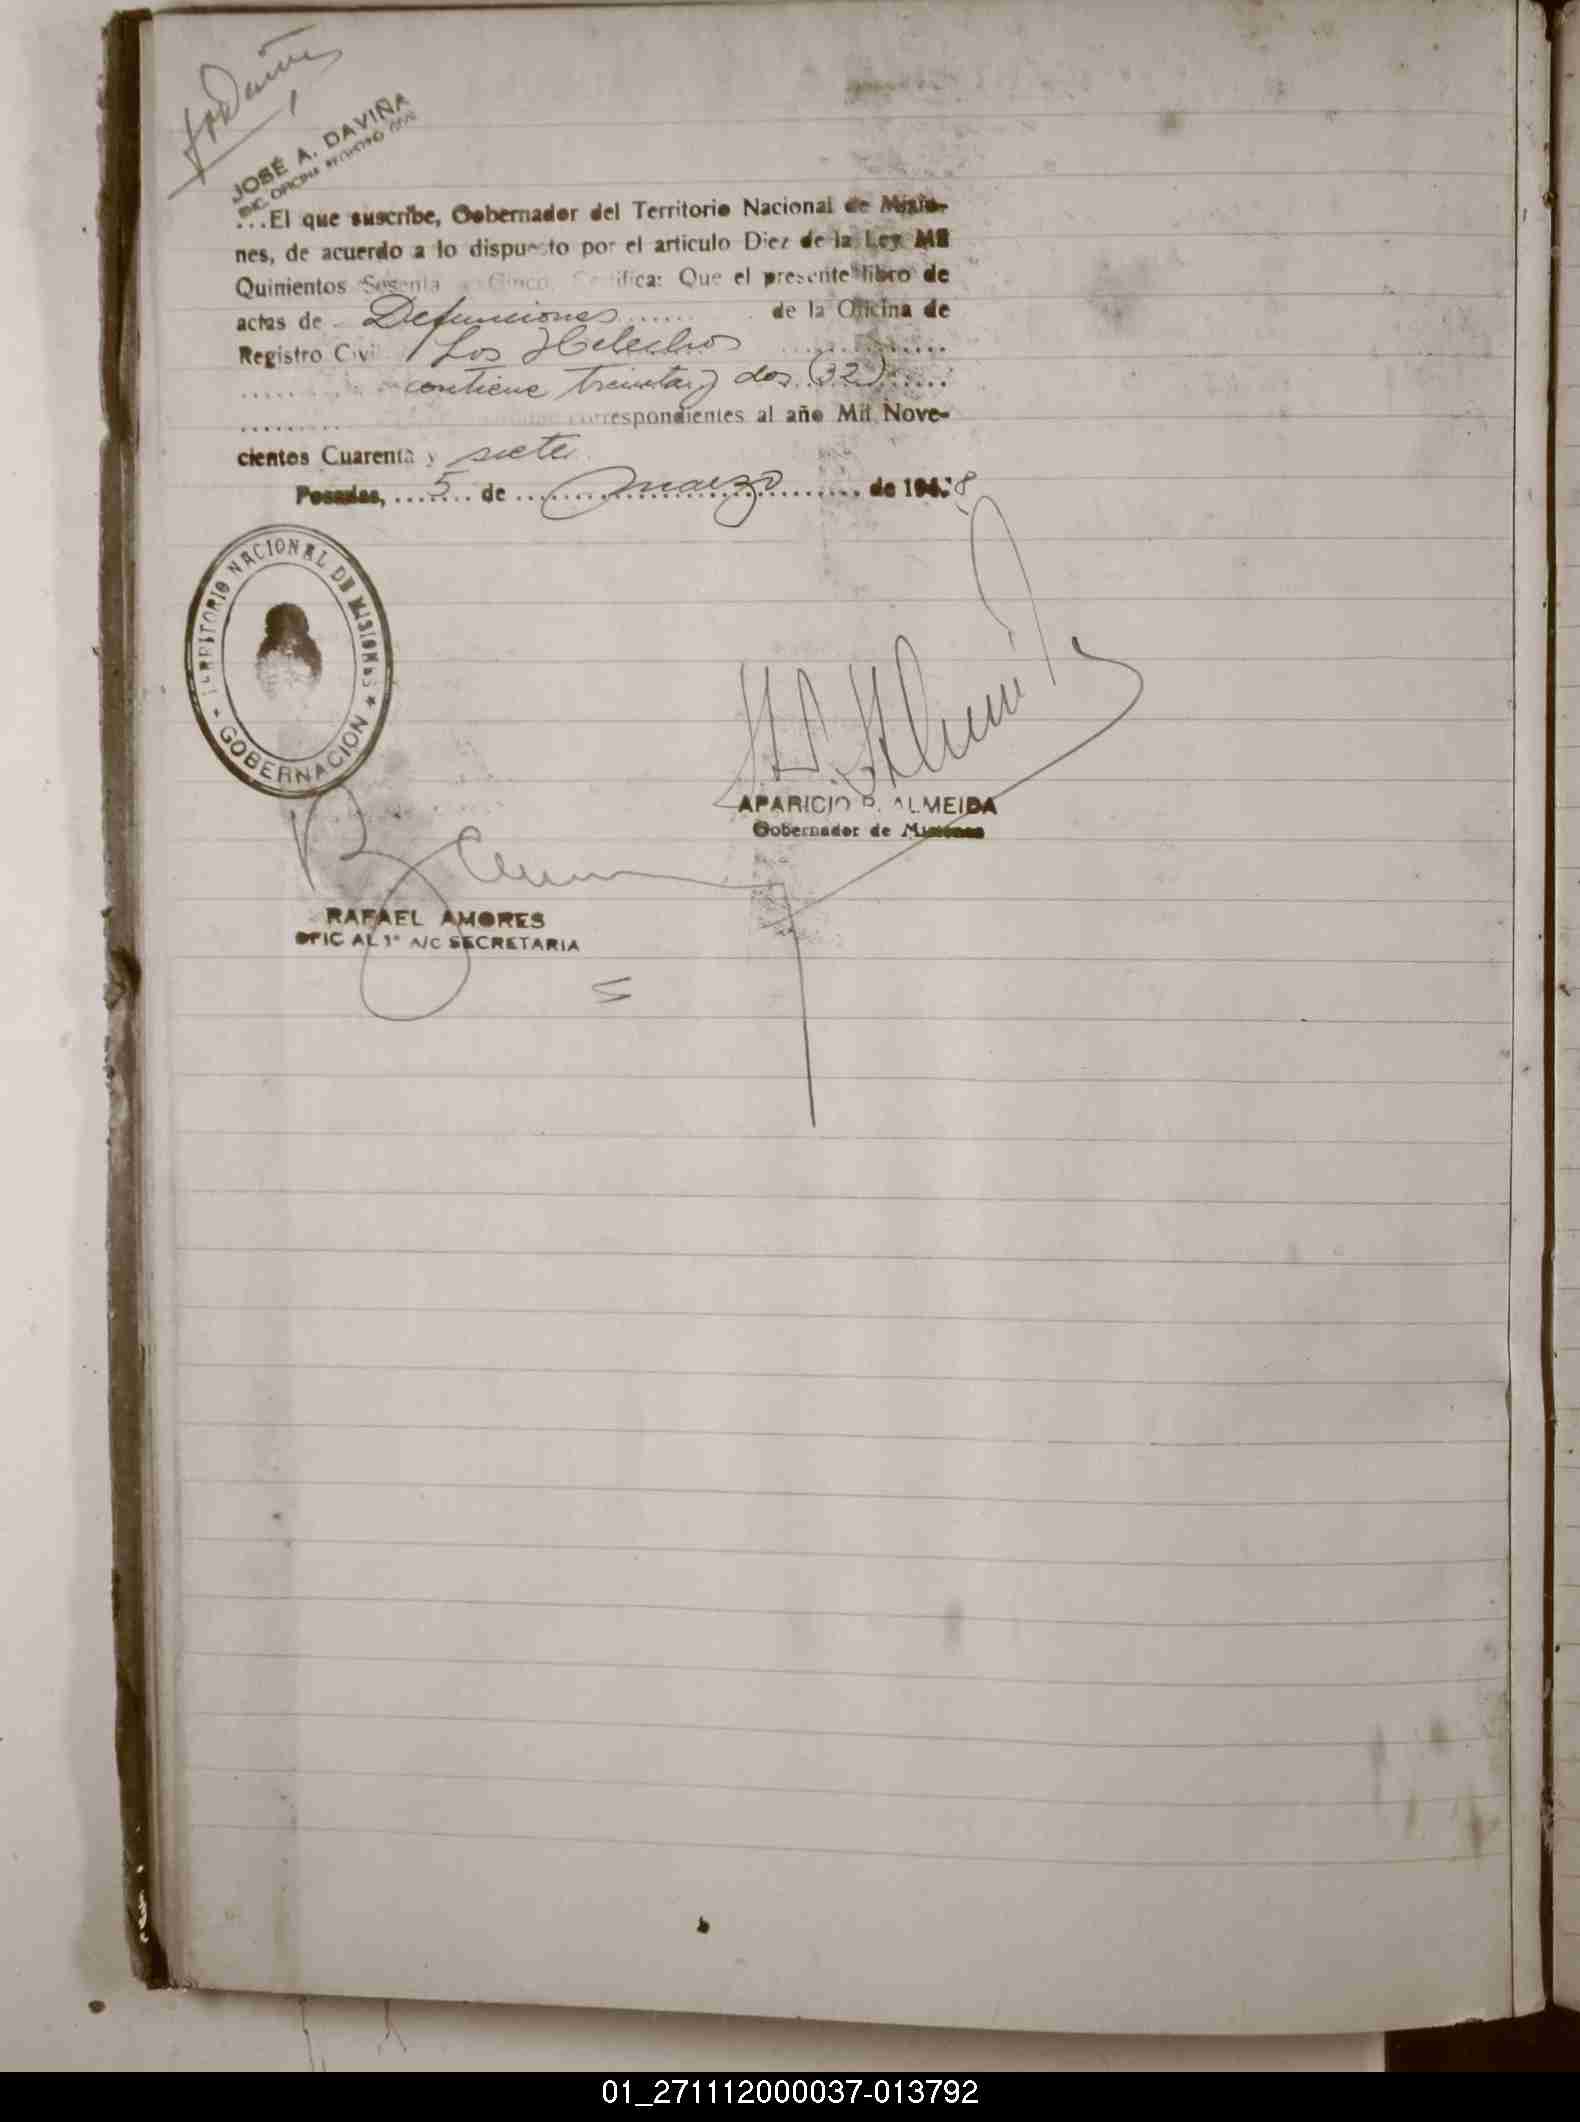 JOSÉ A. DAVIÑA
ENC. OFICINA REGISTRO CIVIL
...El que suscribe, Gobernador del Territorio Nacional de Misio-
nes, de acuerdo a lo dispuesto por el artículo Diez de la Ley Mil
Quinientos Sesenta y Cinco, Certifica: Que el presente libro de
actas de Defunciones ...... de la Oficina de
Registro Civil Los Helechos ............
......... contiene treinta y dos (32) ......
......... correspondientes al año Mil Nove-
cientos Cuarenta y siete
Posadas, ...5... de ... marzo ... de 1948
TERRITORIO NACIONAL DE MISIONES
GOBERNACION
APARICIO P. ALMEIDA
Gobernador de Misiones
RAFAEL AMORES
OFICIAL 1° A/C SECRETARIA
01_271112000037-013792